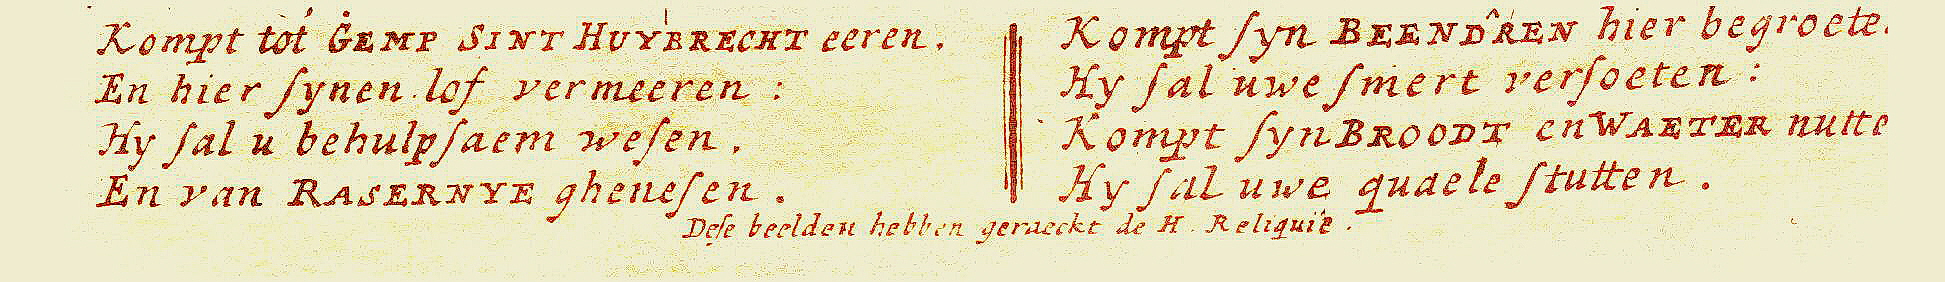 Kompt tot GEMP SINT HUYBRECHT eeren.
En hier ſynen lof vermeeren :
Hy ſal u behulpſaem weſen.
En van RASERNYE gheneſen.
Kompt ſyn BEENDREN hier begroete.
Hy ſal uwe ſmert verſoeten :
Kompt ſyn BROODT en WAETER nutte
Hy ſal uwe quaele ſtutten.
Deſe beelden hebben geraeckt de H. Reliquie.